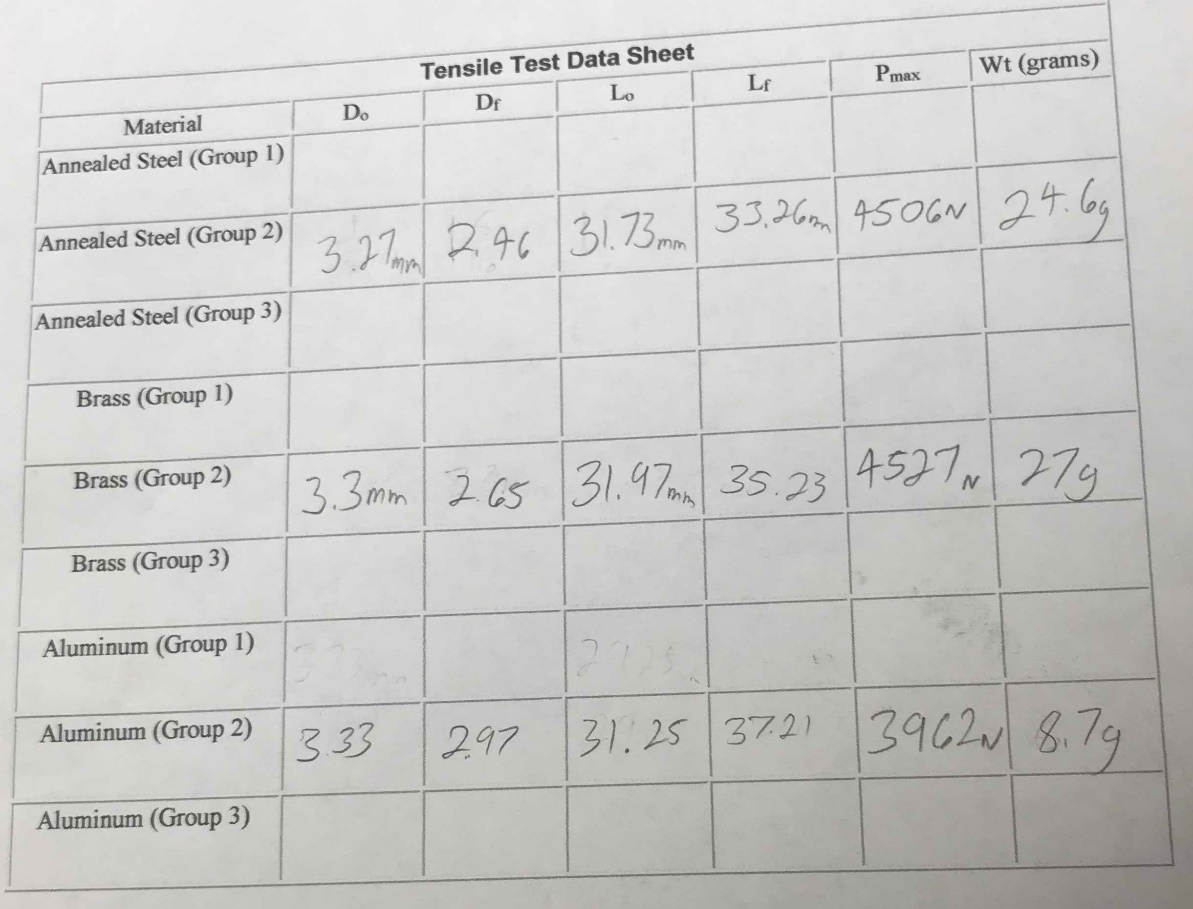 Tensile Test Data Sheet
Material Do Df Lo Lf Pmax Wt (grams)
Annealed Steel (Group 1)
Annealed Steel (Group 2) 3.27mm 2.46 31.73mm 33.26m 4506N 24.6g
Annealed Steel (Group 3)
Brass (Group 1)
Brass (Group 2) 3.3mm 2.65 31.97mm 35.23 4527N 27g
Brass (Group 3)
Aluminum (Group 1)
Aluminum (Group 2) 3.33 2.97 31.25 37.21 3962N 8.7g
Aluminum (Group 3)